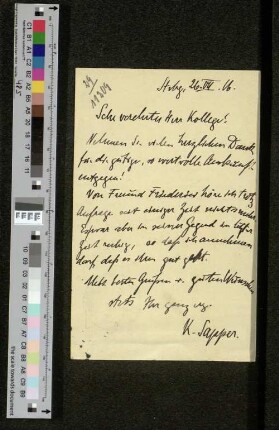 Stbg. 26. VII. 16.
Sehr verehrter Herr Kollege!
Nehmen Sie vielen herzlichen Dank
für die gütige, so wertvolle Auskunft
entgegen!
Von Freund Friederici höre ich trotz
Anfrage seit einiger Zeit nichts mehr
war aber in seiner Gegend in letzter
Zeit ruhig, so daß ich annehmen
darf, daß es ihm gut geht.
Mit besten Grüßen u. guten Wünschen
stets Ihr ganz erg.
K. Sapper.